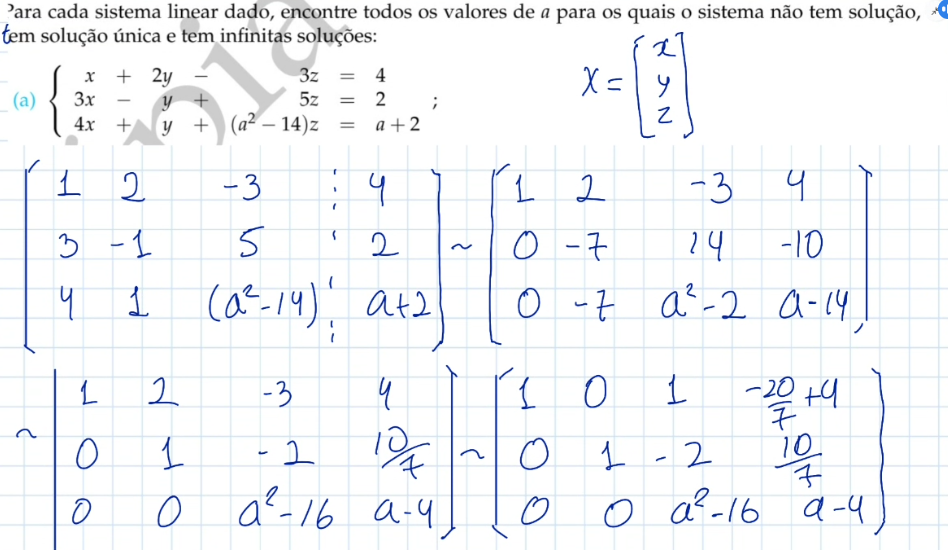 Para cada sistema linear dado, encontre todos os valores de a para os quais o sistema não tem solução,
tem solução única e tem infinitas soluções:
(a) { x + 2y − 3z = 4
3x − y + 5z = 2 ;
4x + y + (a² − 14)z = a + 2
X = [x
y
z]
[1 2 -3 ⋮ 4] ~ [1 2 -3 4]
[3 -1 5 ⋮ 2] ~ [0 -7 14 -10]
[4 1 (a²-14) ⋮ a+2] ~ [0 -7 a²-2 a-14]
~ [1 2 -3 4] ~ [1 0 1 -20/7 +4]
[0 1 -2 10/7] ~ [0 1 -2 10/7]
[0 0 a²-16 a-4] ~ [0 0 a²-16 a-4]